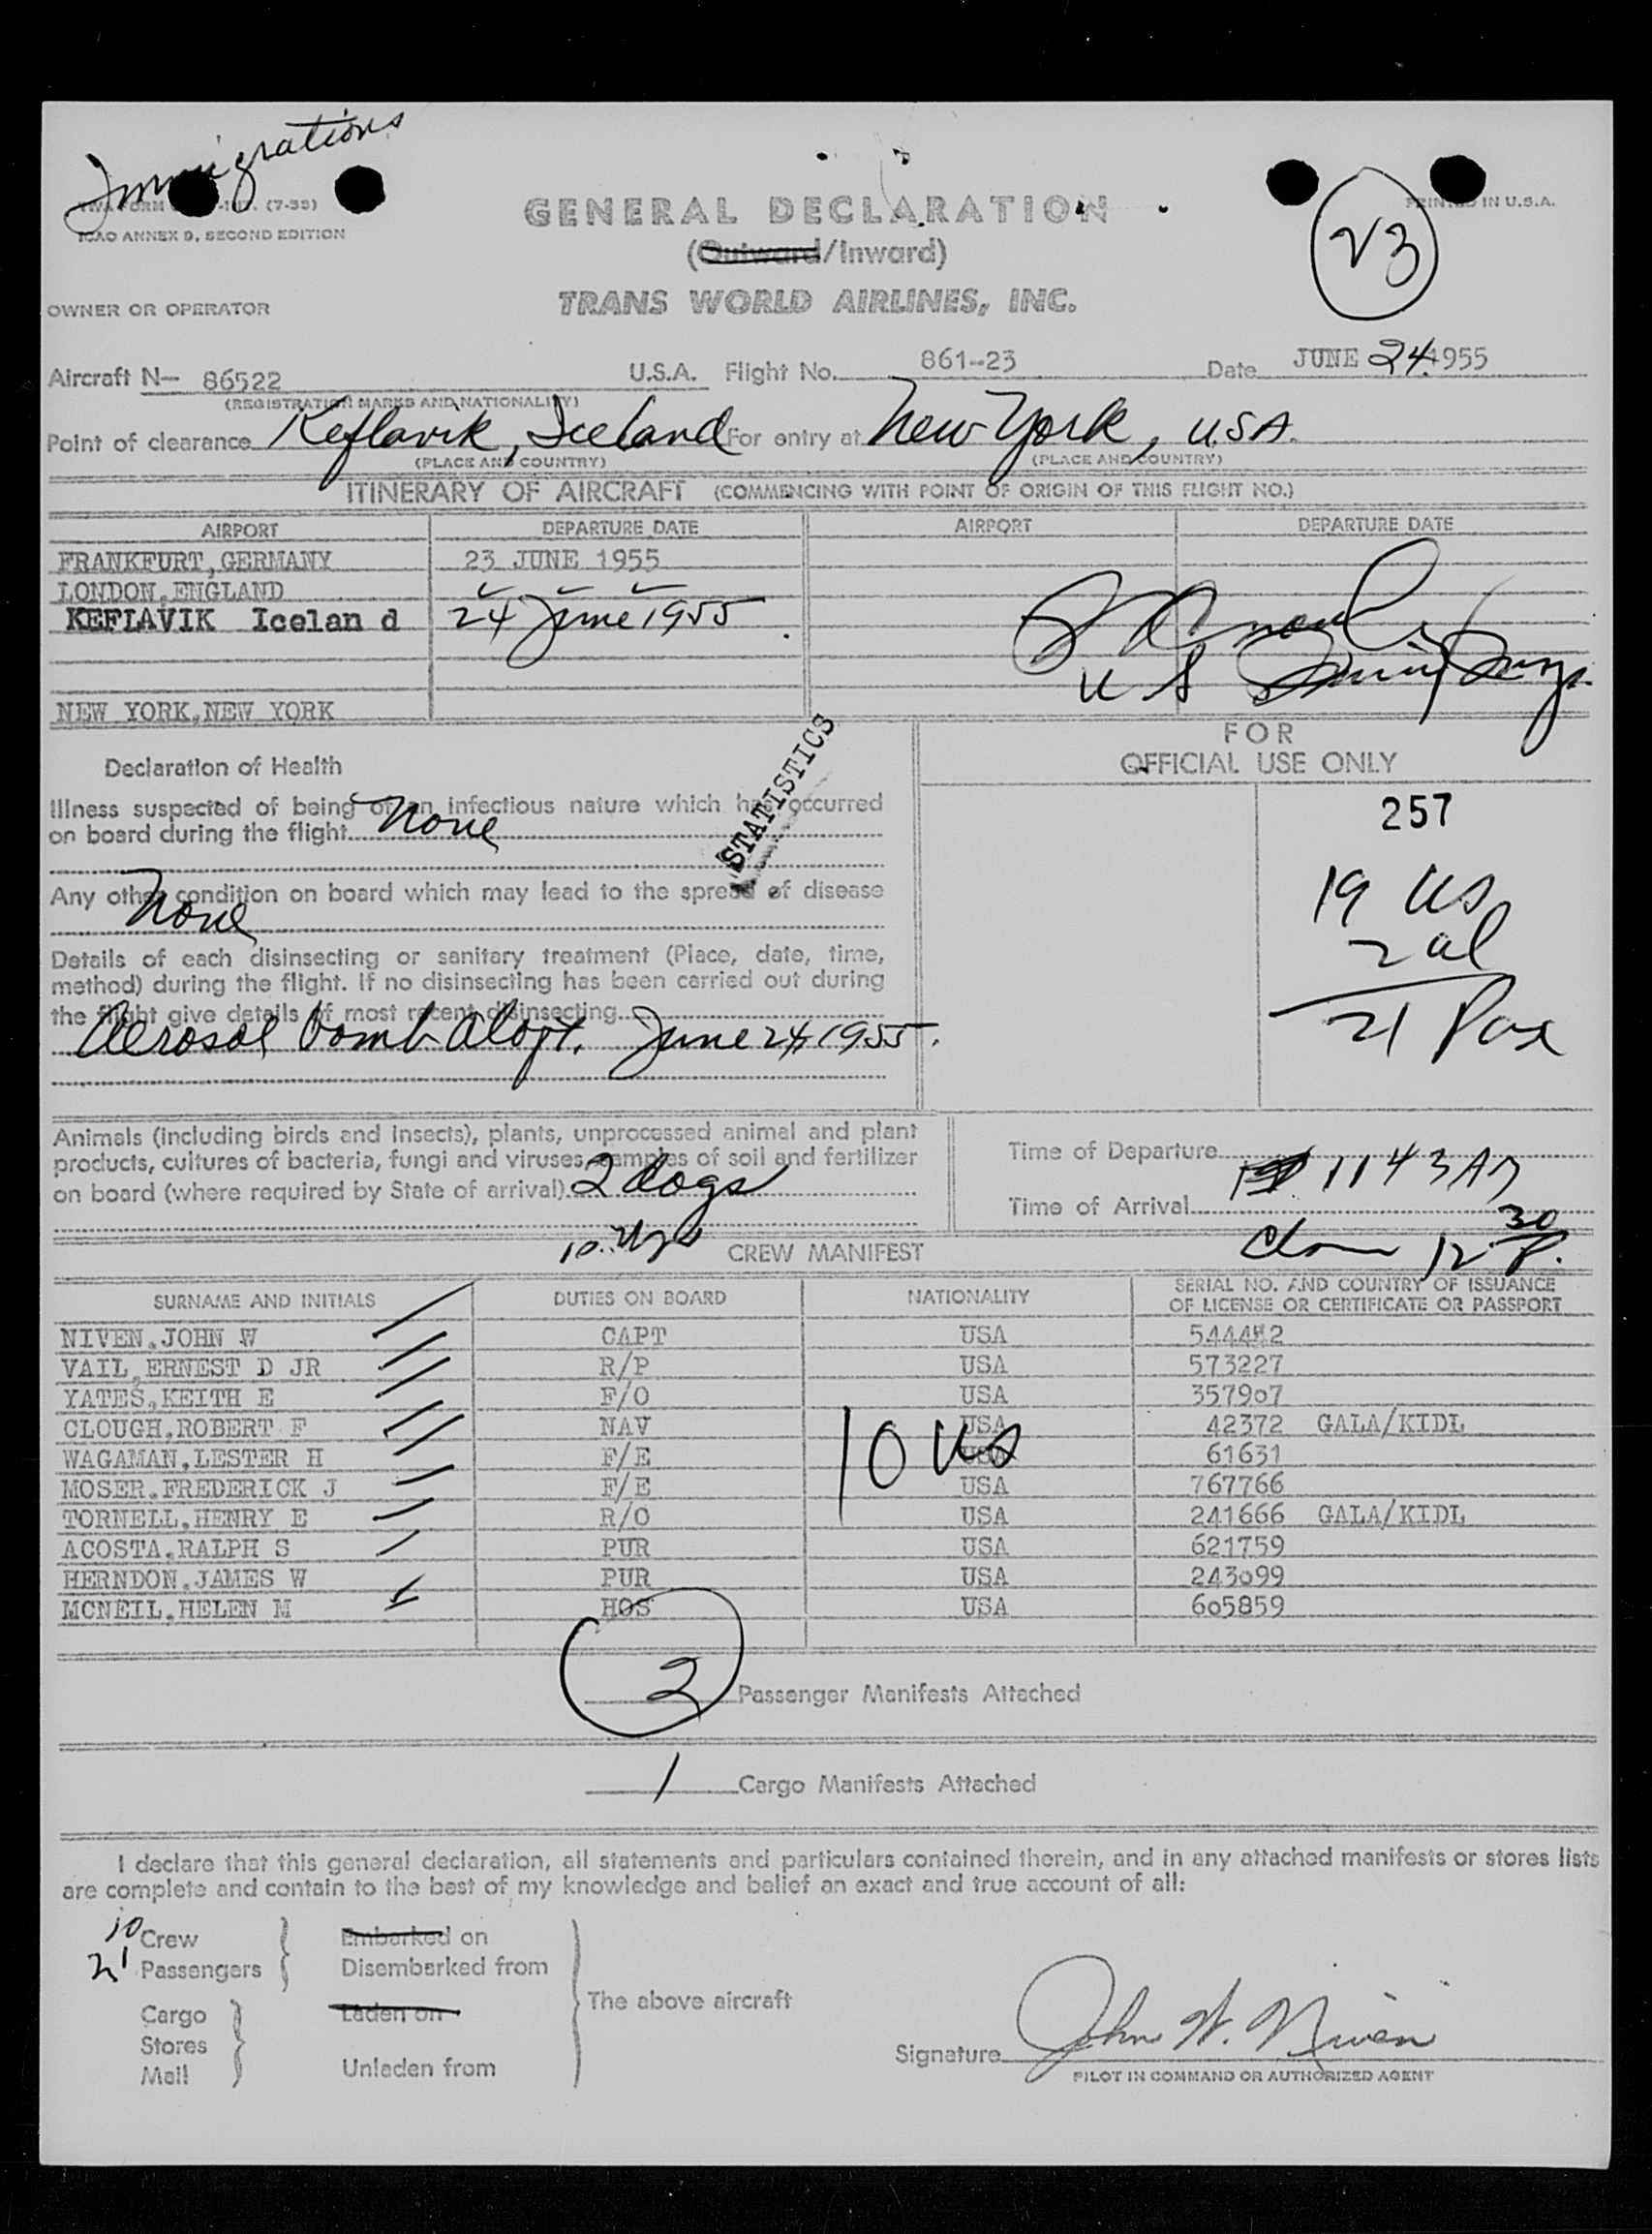 Immigrations
TWA FORM (7-53)
ICAO ANNEX 9, SECOND EDITION
PRINTED IN U.S.A.
GENERAL DECLARATION
23
(Outward/Inward)
OWNER OR OPERATOR
TRANS WORLD AIRLINES, INC.
Aircraft N— 86522 U.S.A. Flight No. 861-23 Date JUNE 24 1955
(REGISTRATION MARKS AND NATIONALITY)
Point of clearance Keflavik, Iceland For entry at New York, U.S.A.
(PLACE AND COUNTRY) (PLACE AND COUNTRY)
ITINERARY OF AIRCRAFT (COMMENCING WITH POINT OF ORIGIN OF THIS FLIGHT NO.)
AIRPORT DEPARTURE DATE AIRPORT DEPARTURE DATE
FRANKFURT, GERMANY 23 JUNE 1955
LONDON, ENGLAND
KEFLAVIK Icelan d 24 June 1955
U S
NEW YORK, NEW YORK
STATISTICS
Declaration of Health
Illness suspected of being of an infectious nature which has occurred
on board during the flight None
Any other condition on board which may lead to the spread of disease
None
Details of each disinsecting or sanitary treatment (Place, date, time,
method) during the flight. If no disinsecting has been carried out during
the flight give details of most recent disinsecting
Aerosol bomb June 24, 1955.
FOR
OFFICIAL USE ONLY
257
19 US
2 al
21 Pax
Animals (including birds and insects), plants, unprocessed animal and plant
products, cultures of bacteria, fungi and viruses, samples of soil and fertilizer
on board (where required by State of arrival) 2 dogs
Time of Departure
1143 AM
Time of Arrival
12 30 P.
CREW MANIFEST
SURNAME AND INITIALS DUTIES ON BOARD NATIONALITY SERIAL NO. AND COUNTRY OF ISSUANCE
OF LICENSE OR CERTIFICATE OR PASSPORT
NIVEN, JOHN W CAPT USA 544442
VAIL, ERNEST D JR R/P USA 573227
YATES, KEITH E F/O USA 357907
CLOUGH, ROBERT F NAV USA 42372 GALA/KIDL
WAGAMAN, LESTER H F/E USA 61631
10 US
MOSER, FREDERICK J F/E USA 767766
TORNELL, HENRY E R/O USA 241666 GALA/KIDL
ACOSTA, RALPH S PUR USA 621759
HERNDON, JAMES W PUR USA 243099
MCNEIL, HELEN M HOS USA 605859
2 Passenger Manifests Attached
1 Cargo Manifests Attached
I declare that this general declaration, all statements and particulars contained therein, and in any attached manifests or stores lists
are complete and contain to the best of my knowledge and belief an exact and true account of all:
10 Crew Embarked on
21 Passengers Disembarked from
The above aircraft
Cargo Laden on
Stores
Mail Unladen from
Signature John W. Niven
PILOT IN COMMAND OR AUTHORIZED AGENT